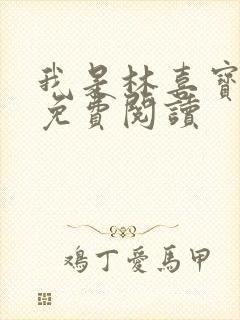 我是林喜寶
免費閱讀
鴻丁愛馬甲